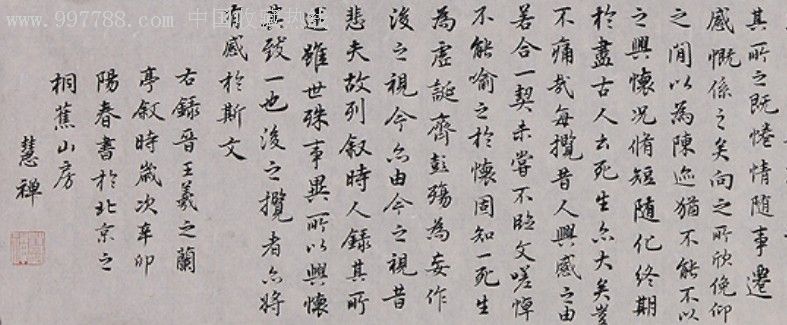 www.997788.com 中国收藏热线
其所之既惓情随事遷
感慨係之矣向之所欣俛仰
之间以為陳迹猶不能不以
之興懷况脩短随化终期
於盡古人云死生亦大矣豈
不痛哉每攬昔人興感之由
若合一契未嘗不臨文嗟悼
不能喻之於懷固知一死生
為虚誕齊彭殤為妄作
後之視今亦由今之視昔
悲夫故列叙時人録其所
述雖世殊事異所以興懷
其致一也後之攬者亦將
有感於斯文
右録晋王羲之蘭
亭叙時歲次辛卯
陽春書於北京之
桐蕉山房
慧禅